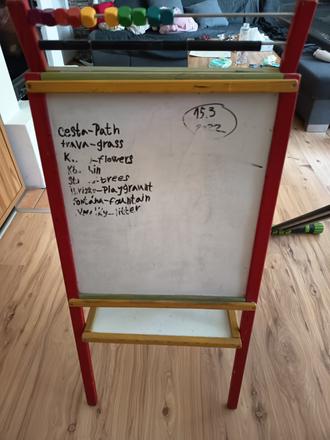 15.3
2022
cesta-Path
trava-grass
flowers
trees
Playgraunt
fontána-fountain
litter